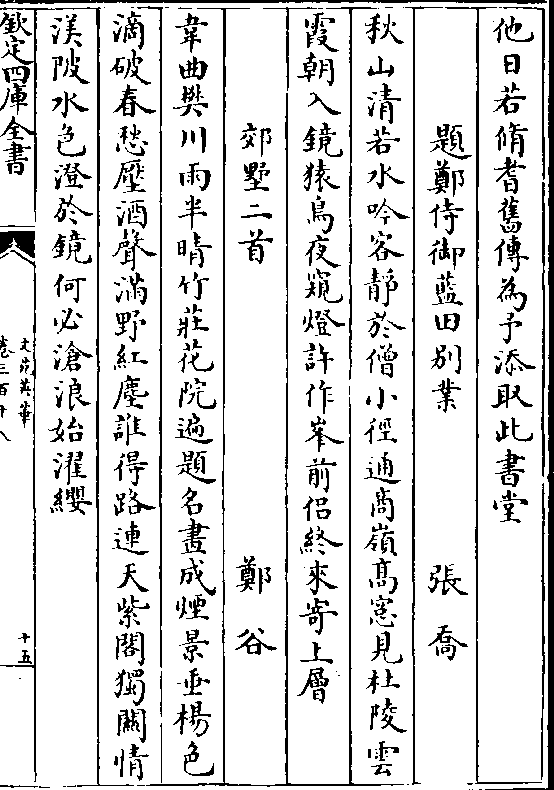 他日若脩耆舊傳為予添取此書堂
題鄭侍御藍田別業　張喬
秋山清若水吟客靜於僧小徑通商嶺高窓見杜陵雲
霞朝入鏡猿鳥夜窺燈許作峯前侣終來寄上層
郊墅二首　鄭谷
韋曲樊川雨半晴竹莊花院遍題名畫成煙景垂楊色
滴破春愁壓酒聲滿野紅塵誰得路連天紫閣獨關情
渼陂水色澄於鏡何必滄浪始濯纓
欽定四庫全書
文苑英華
卷三百十八
十五